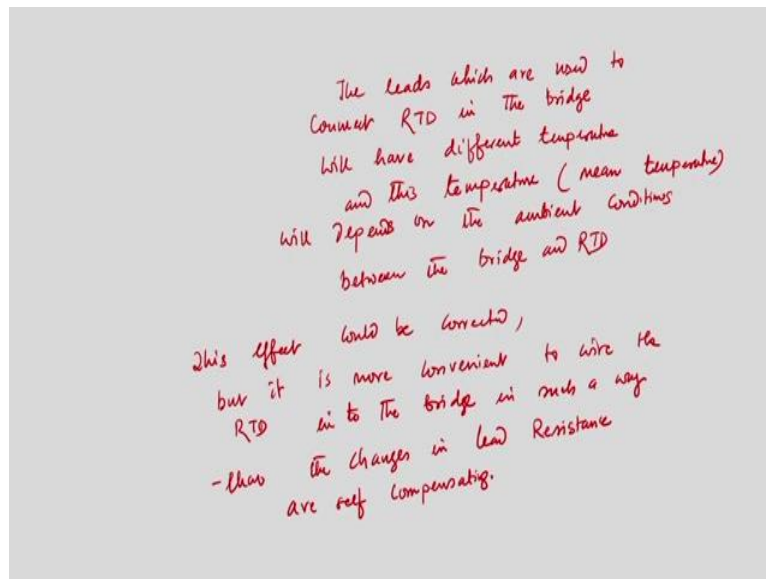 The leads which are used to
Connect RTD in The bridge
will have different temperature
and this temperature (mean temperature)
will depends on the ambient conditions
between the bridge and RTD
This effect could be corrected,
but it is more convenient to wire the
RTD in to The bridge in such a way
-that the changes in lead Resistance
are self compensating.